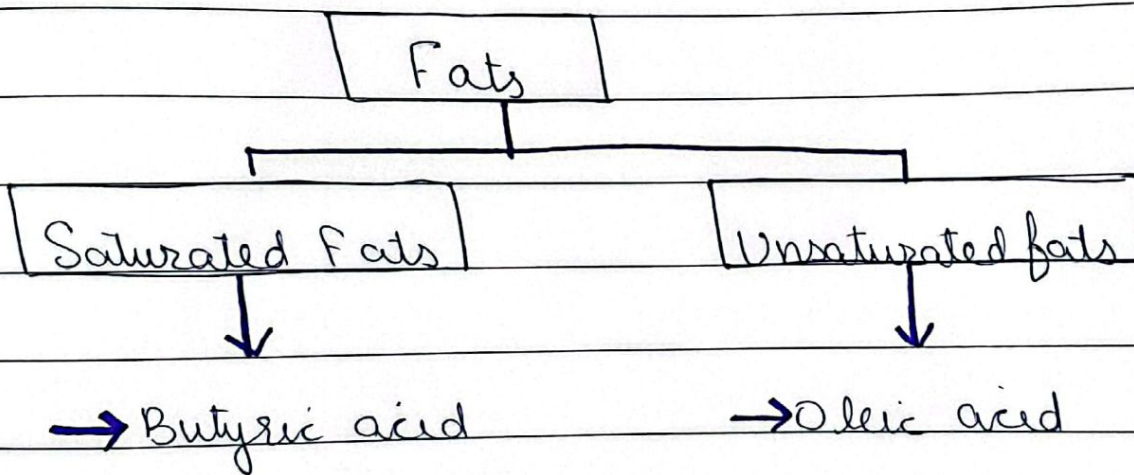 Fats
Saturated Fats Unsaturated fats
→ Butyric acid → Oleic acid